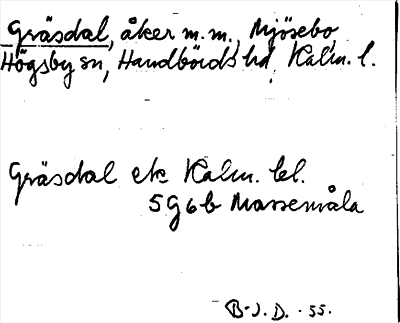 Gräsdal, åker m.m., Mjösebo,
Högsby sn, Handbörds hd, Kalm. l.
Gräsdal ek Kalm. bl.
5G6b Massemåla
B.J.D. -55.